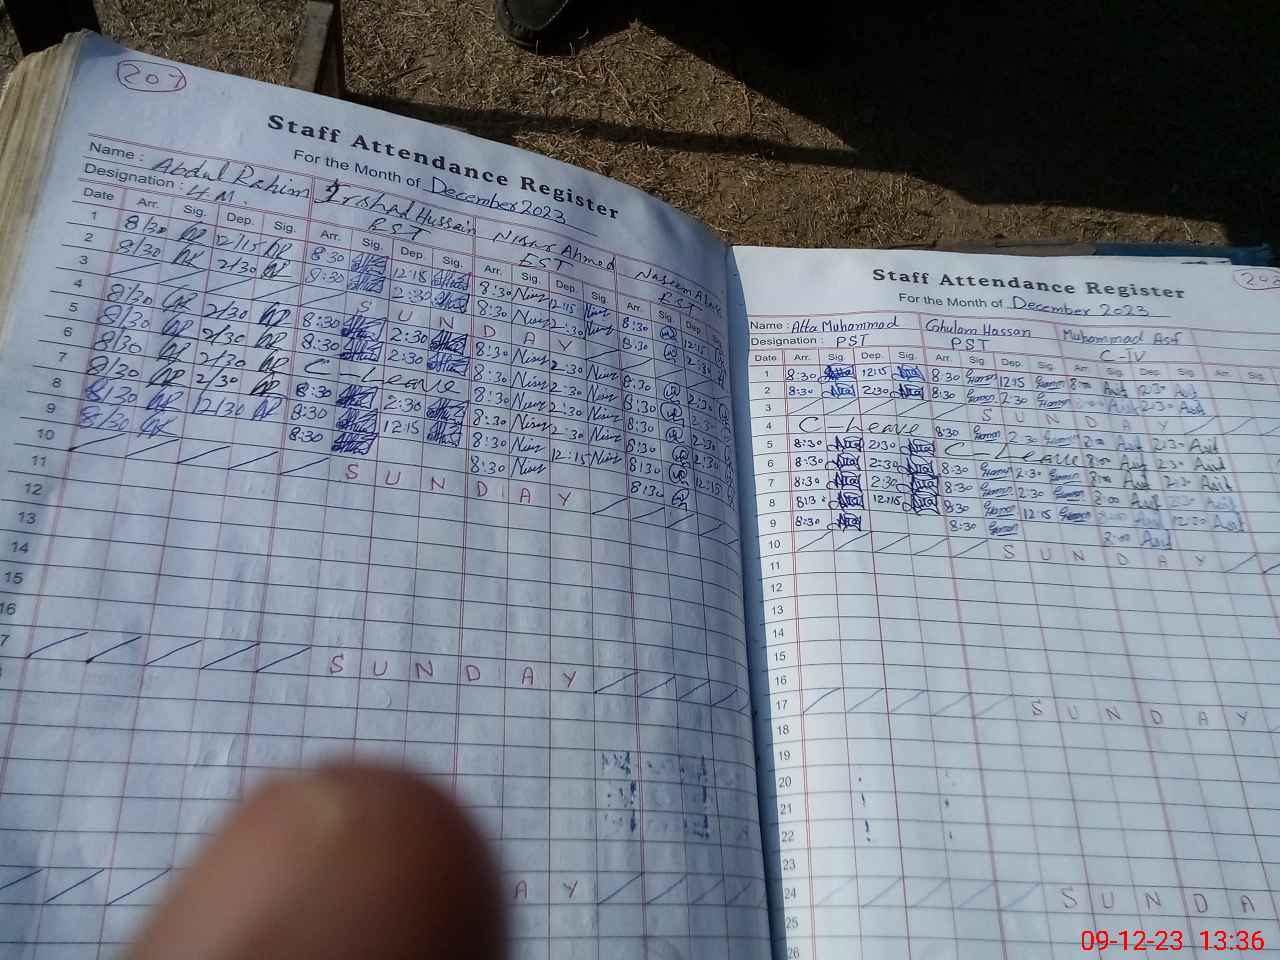 207
Staff Attendance Register
For the Month of December 2023
Name : Abdul Rahim Irshad Hussain Nisar Ahmed Naseem
Designation : H.M. EST
Date Arr. Sig. Dep. Sig. Arr. Sig. Dep. Sig. Arr. Sig. Dep. Sig. Arr. Sig. Dep.
1 8/30 12/15 8:30 12:15 8:30 12:15 8:30 12:15
2 8/30 2/30 8:30 2:30 8:30 2:30 8:30 2:30
3 S U N D A Y
4 8/30 2/30 8:30 2:30 8:30 2:30 8:30 2:30
5 8/30 2/30 8:30 2:30 8:30 2:30 8:30 2:30
6 8/30 2/30 C - Leave 8:30 2:30 8:30 2:30
7 8/30 2/30 8:30 2:30 8:30 2:30 8:30 2:30
8 8/30 12/30 8:30 12:15 8:30 12:15 8:30 12:15
9 8/30 8:30 8:30 8:30
10 S U N D A Y
11
12
13
14
15
16
7 S U N D A Y
A Y
Staff Attendance Register
For the Month of December 2023
Name : Atta Muhammad Ghulam Hassan Muhammad Asif
Designation : PST PST C-IV
Date Arr. Sig. Dep. Sig. Arr. Sig. Dep. Sig. Arr. Sig. Dep. Sig. Arr. Sig.
1 8:30 12:15 8:30 12:15 8:00 Asif 12:30 Asif
2 8:30 2:30 8:30 2:30 Asif 2:30 Asif
3 S U N D A Y
4 C - Leave 8:30 2:30 8:00 Asif 2:30 Asif
5 8:30 2:30 C - Leave 8:00 Asif 2:30 Asif
6 8:30 2:30 8:30 2:30 8:00 Asif 2:30 Asif
7 8:30 2:30 8:30 2:30 8:00 Asif 2:30 Asif
8 8:30 12:15 8:30 12:15 8:00 Asif 12:30 Asif
9 8:30 8:30 8:00 Asif
10 S U N D A Y
11
12
13
14
15
16
17 S U N D A Y
18
19
20
21
22
23
24 S U N D A
25
26
09-12-23 13:36